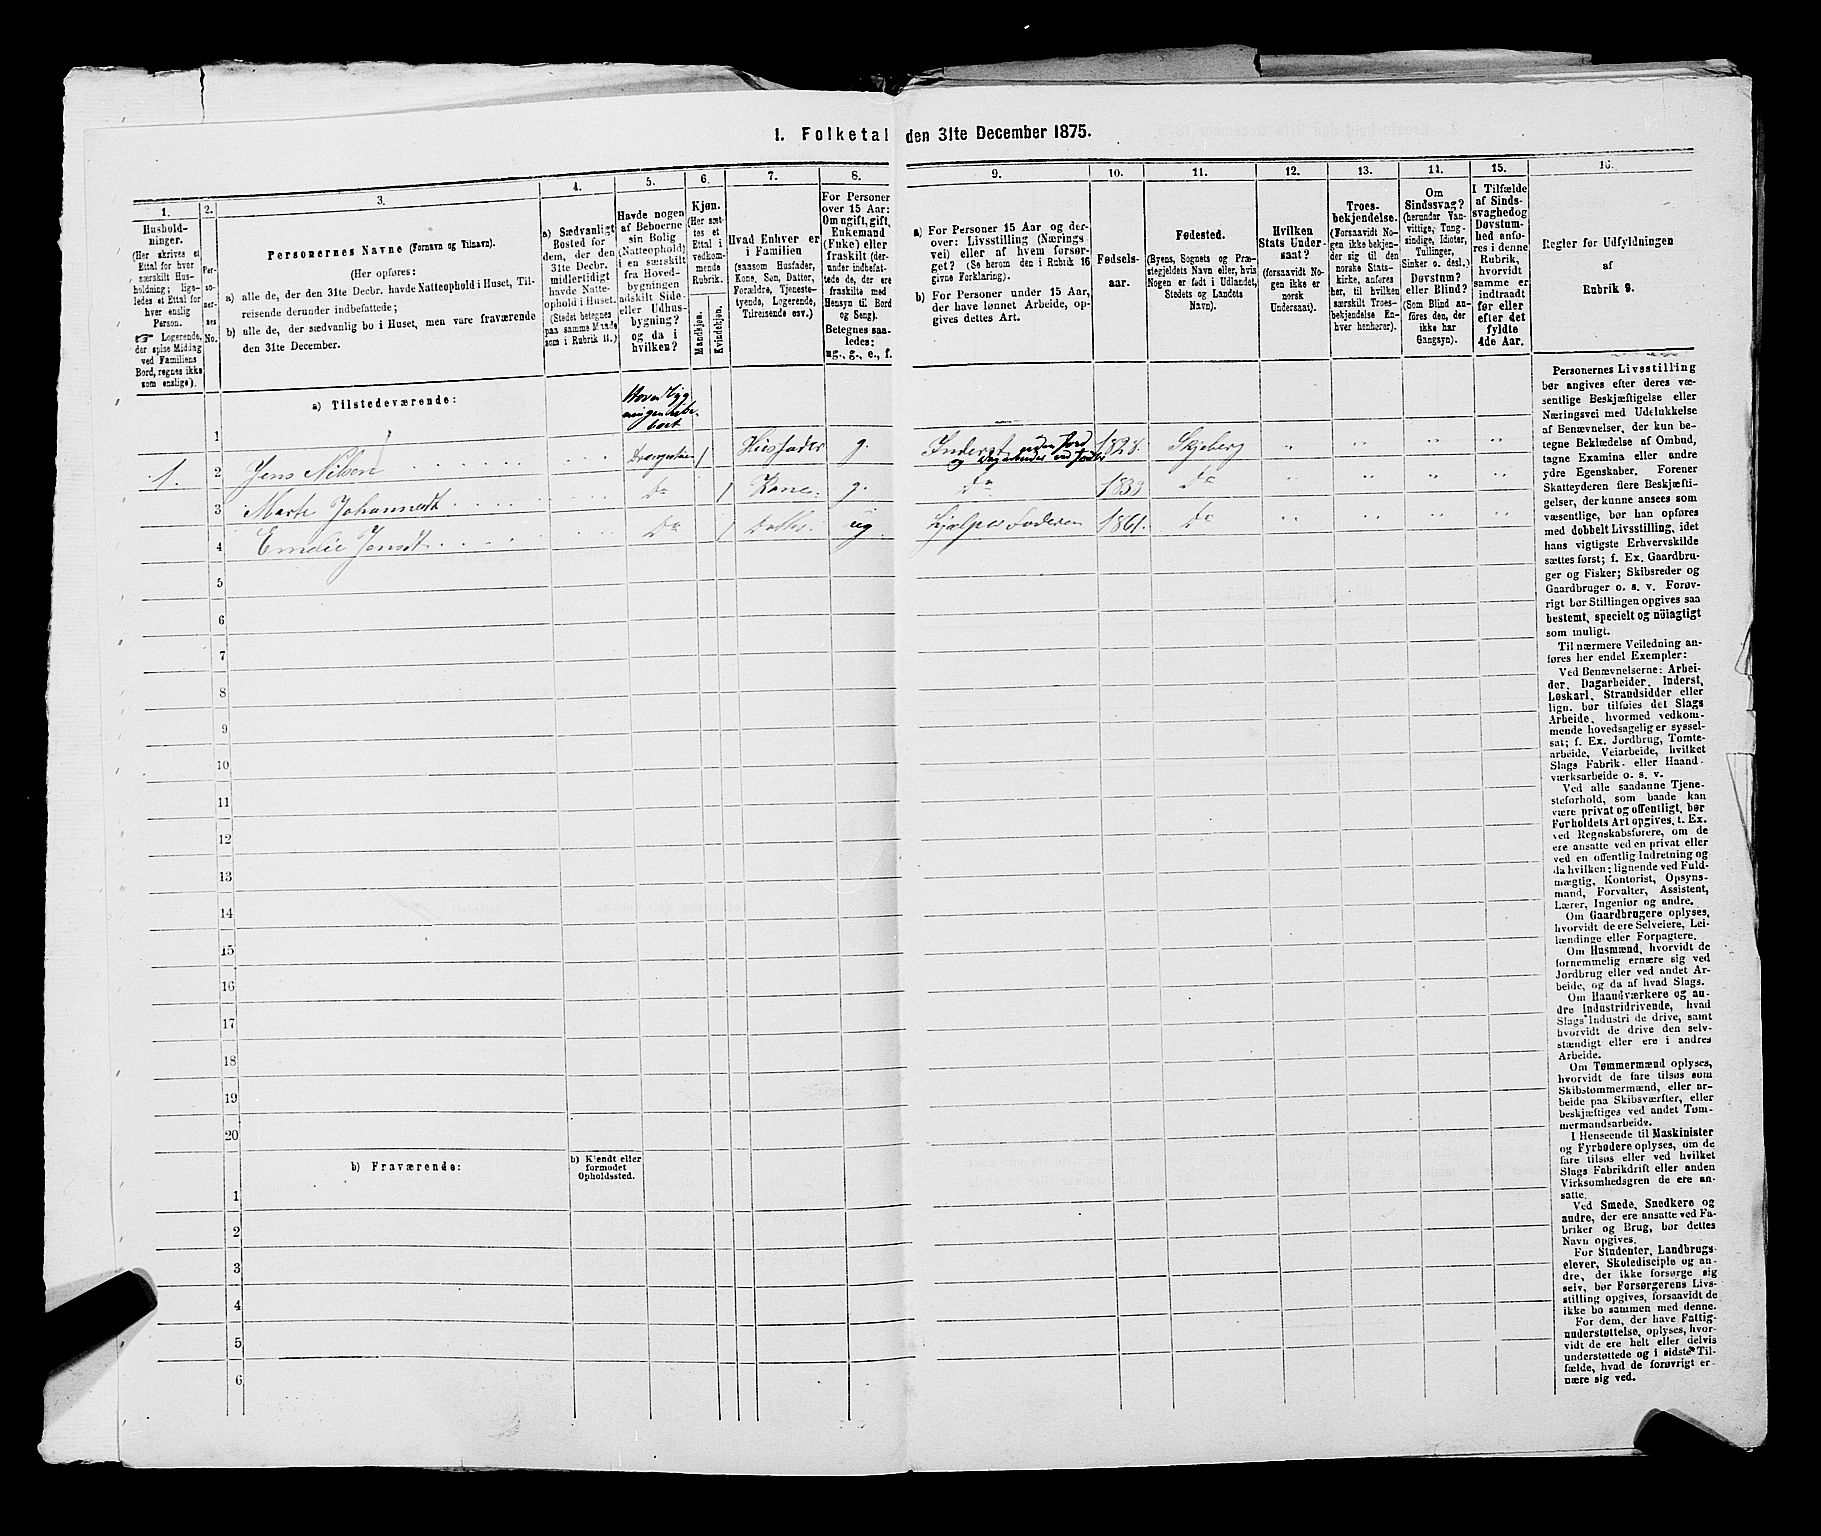 1. Folketal den 31te December 1875.
1.
2.
3.
4.
5.
6.
7.
8.
9.
10.
11.
12.
13.
14.
15.
16.
Husholdninger.
(Her skrives et
Ettal for hver
særskilt Husholdning;
ligeledes
et Ettal for
hver enslig
Person.
☞ Logerende,
der spise Middag
ved Familiens
Bord, regnes ikke
som enslige).
Personernes No.
Personernes Navne (Fornavn og Tilnavn).
(Her opføres:
a) alle de, der den 31te Decbr. havde Natteophold i Huset, Tilreisende
derunder indbefattede;
b) alle de, der sædvanlig bo i Huset, men vare fraværende
den 31te December.
a) Sædvanligt
Bosted for
dem, der den
31te Decbr.
midlertidigt
havde Natteophold
i Huset.
(Stedet betegnes
paa samme Maade
som i Rubrik 11.)
Havde nogen
af Beboerne
sin Bolig
(Natteophold)
i en særskilt
fra Hovedbygningen
adskilt Side-
eller Udhusbygning?
og da i
hvilken?
Kjøn.
(Her sættes
et
Ettal i
vedkommende
Rubrik.
Mandkjøn.
Kvindekjøn.
Hvad Enhver er
i Familien
(saasom Husfader,
Kone, Søn, Datter,
Forældre, Tjenestetyende,
Logerende,
Tilreisende osv.)
For Personer
over 15 Aar:
Om ugift, gift,
Enkemand
(Enke) eller
fraskilt (derunder
indbefattede
de, der ere
fraskilte med
Hensyn til Bord
og Seng).
Betegnes saaledes:
ug., g., e., f.
a) For Personer 15 Aar og derover:
Livsstilling (Næringsvei)
eller af hvem forsørget?
(Se herom den i Rubrik 16
givne Forklaring).
b) For Personer under 15 Aar,
der have lønnet Arbeide, opgives
dettes Art.
Fødselsaar.
Fødested.
(Byens, Sognets og Præstegjeldets
Navn eller, hvis
Nogen er født i Udlandet,
Stedets og Landets
Navn).
Hvilken
Stats Undersaat?
(forsaavidt Nogen
ikke er
norsk
Undersaat).
Troesbekjendelse.
(Forsaavidt Nogen
ikke bekjender
sig til den
norske Statskirke,
anføres
her, til hvilken
særskilt Troesbekjendelse
Enhver
henhører).
Om
Sindssvag?
(herunder Vanvittige,
Tungsindige,
Idioter,
Tullinger,
Sinker o. desl.)
Døvstum?
eller Blind?
(Som Blind anføres
den, der
ikke har
Gangsyn).
I Tilfælde
af Sindssvaghed
og
Døvstumhed
anføres
i denne
Rubrik,
hvorvidt
samme er
indtraadt
før eller
efter det
fyldte
4de Aar.
Regler for Udfyldningen
af
Rubrik 9.
a) Tilstedeværende:
1
1. 2 Jens Nilsen Husfader g. Inderst uden Jord og Dagarbeider ved Jorden 1828. Skjeberg
3 Marte Johannesdt Do 1 Kone g. Do 1833 Do
4 Emilie Jensdt Do 1 Datter ug Hjælper Faderen 1861. Do
5
6
7
8
9
10
11
12
13
14
15
16
17
18
19
20
b) Fraværende:
b) Kjendt eller
formodet
Opholdssted.
1
2
3
4
5
6
Personernes Livsstilling
bør angives efter deres væsentlige
Beskjæftigelse eller
Næringsvei med Udelukkelse
af Benævnelser, der kun betegne
Beklædelse af Ombud,
tagne Examina eller andre
ydre Egenskaber. Forener
Skatteyderen flere Beskjæftigelser,
der kunne ansees som
væsentlige, bør han opføres
med dobbelt Livsstilling, idet
hans vigtigste Erhvervskilde
sættes først; f. Ex. Gaardbruger
og Fisker; Skibsreder og
Gaardbruger o. s. v. Forøvrigt
bør Stillingen opgives saa
bestemt, specielt og nöiagtigt
som muligt.
Til nærmere Veiledning anføres
her endel Exempler:
Ved Benævnelserne: Arbeider,
Dagarbeider, Inderst,
Løskarl, Strandsidder eller
lign. bør tilføies det Slags
Arbeide, hvormed vedkommende
hovedsagelig er sysselsat;
f. Ex. Jordbrug, Tomtearbeide,
Veiarbeide, hvilket
Slags Fabrik- eller Haandværksarbeide
o. s. v.
Ved alle saadanne Tjenesteforhold,
som baade kan
være privat og offentligt, bør
Forholdets Art opgives, t. Ex.
ved Regnskabsførere, om de
ere ansatte ved en privat eller
ved en offentlig Indretning og
da hvilken; lignende ved Fuldmægtig,
Kontorist, Opsynsmand,
Forvalter, Assistent,
Lærer, Ingeniør og andre.
Om Gaardbrugere oplyses,
hvorvidt de ere Selveiere, Leilændinge
eller Forpagtere.
Om Husmænd, hvorvidt de
fornemmelig ernære sig ved
Jordbrug eller ved andet Arbeide,
og da af hvad Slags.
Om Haandværkere og andre
Industridrivende, hvad
Slags Industri de drive, samt
hvorvidt de drive den selvstændigt
eller ere i andres
Arbeide.
Om Tømmermænd oplyses,
hvorvidt de fare tilsøs som
Skibstømmermænd, eller arbeide
paa Skibsværfter, eller
beskjæftiges ved andet Tømmermandsarbeide.
I Henseende til Maskinister
og Fyrbødere oplyses, om de
fare tilsøs eller ved hvilket
Slags Fabrikdrift eller anden
Virksomhedsgren de ere ansatte.
Ved Smede, Snedkere og
andre, der ere ansatte ved Fabriker
og Brug, bør dettes
Navn opgives.
For Studenter, Landbrugselever,
Skoledisciple og andre,
der ikke forsørge sig
selv, bør Forsørgerens Livsstilling
opgives, forsaavidt de
ikke bo sammen med denne.
For dem, der have Fattigunderstøttelse,
oplyses, hvorvidt
de ere helt eller delvis
understøttede og i sidste Tilfælde,
hvad de forøvrigt ernære
sig ved.